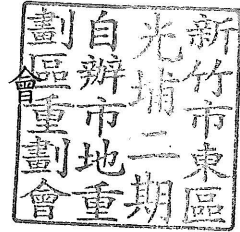 新竹市東區
光埔二期
自辦市地重
劃區重劃會
會